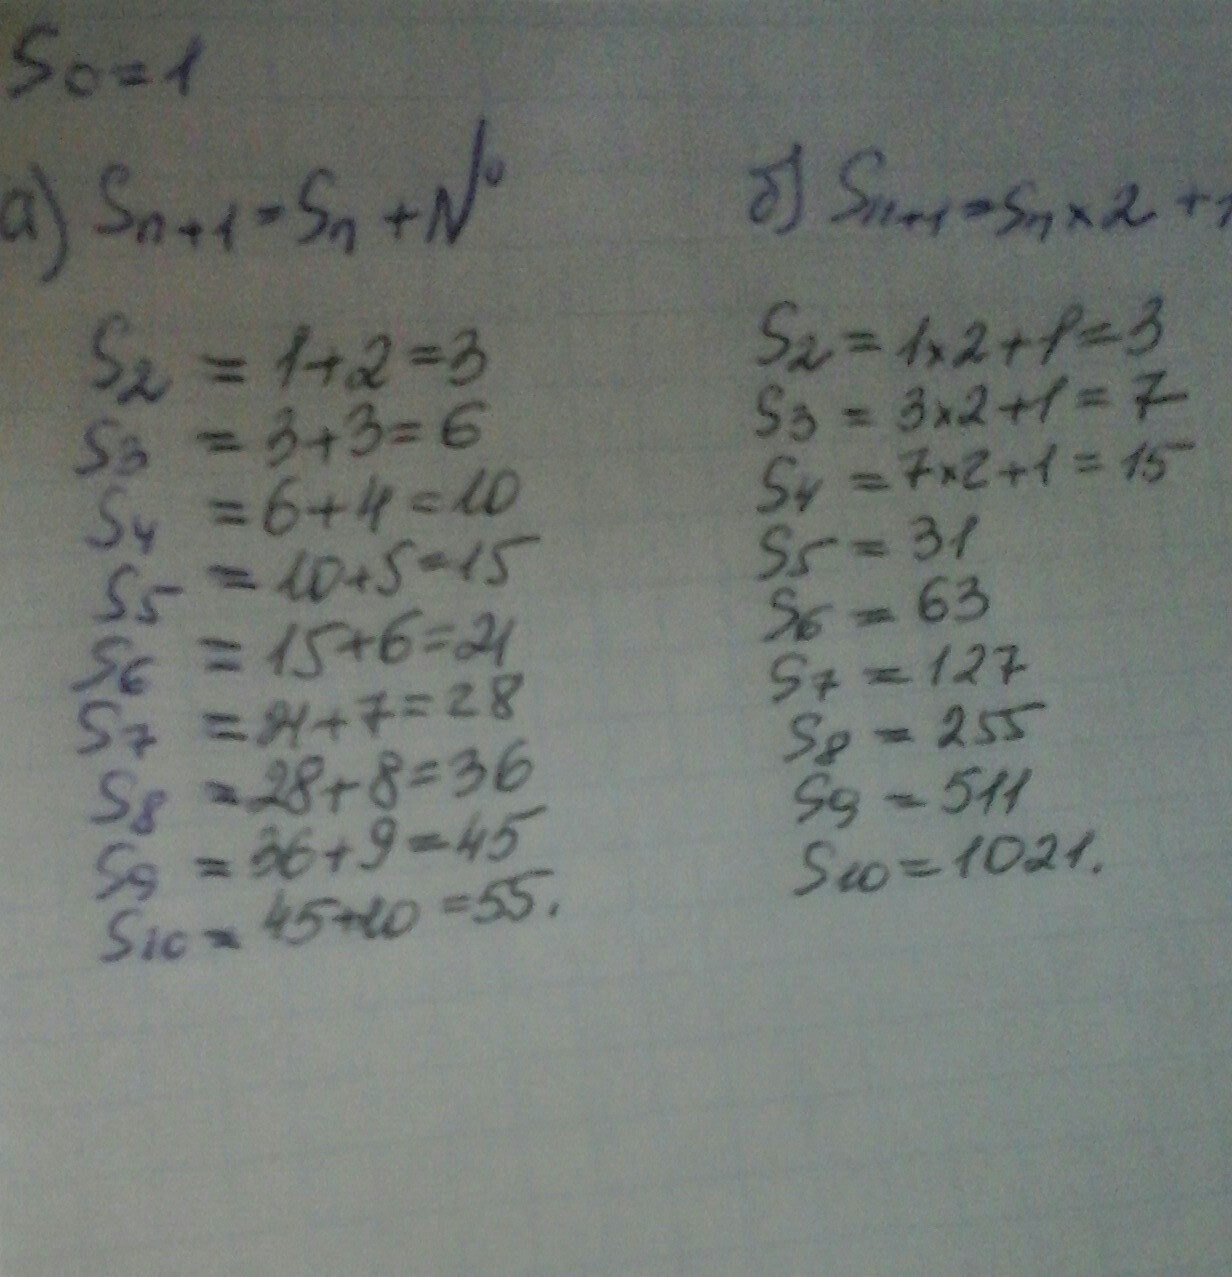 S₀=1
а) Sₙ₊₁=Sₙ+№
S₂ = 1+2=3
S₃ = 3+3=6
S₄ = 6+4=10
S₅ = 10+5=15
S₆ = 15+6=21
S₇ = 21+7=28
S₈ = 28+8=36
S₉ = 36+9=45
S₁₀ = 45+10=55.
б) Sₙ₊₁=Sₙ×2+1
S₂=1×2+1=3
S₃=3×2+1=7
S₄=7×2+1=15
S₅=31
S₆=63
S₇=127
S₈=255
S₉=511
S₁₀=1021.